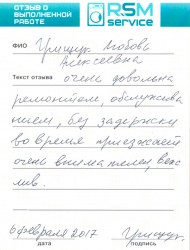 ОТЗЫВ О
ВЫПОЛНЕННОЙ
РАБОТЕ
RSM
service
ФИО Грищук Любовь
Алексеевна
Текст отзыва очень довольна
ремонтом, обслужива
нием, без задержки
во время приезжает
очень внимателен, веж
лив.
6 февраля 2017 Грищук
дата подпись